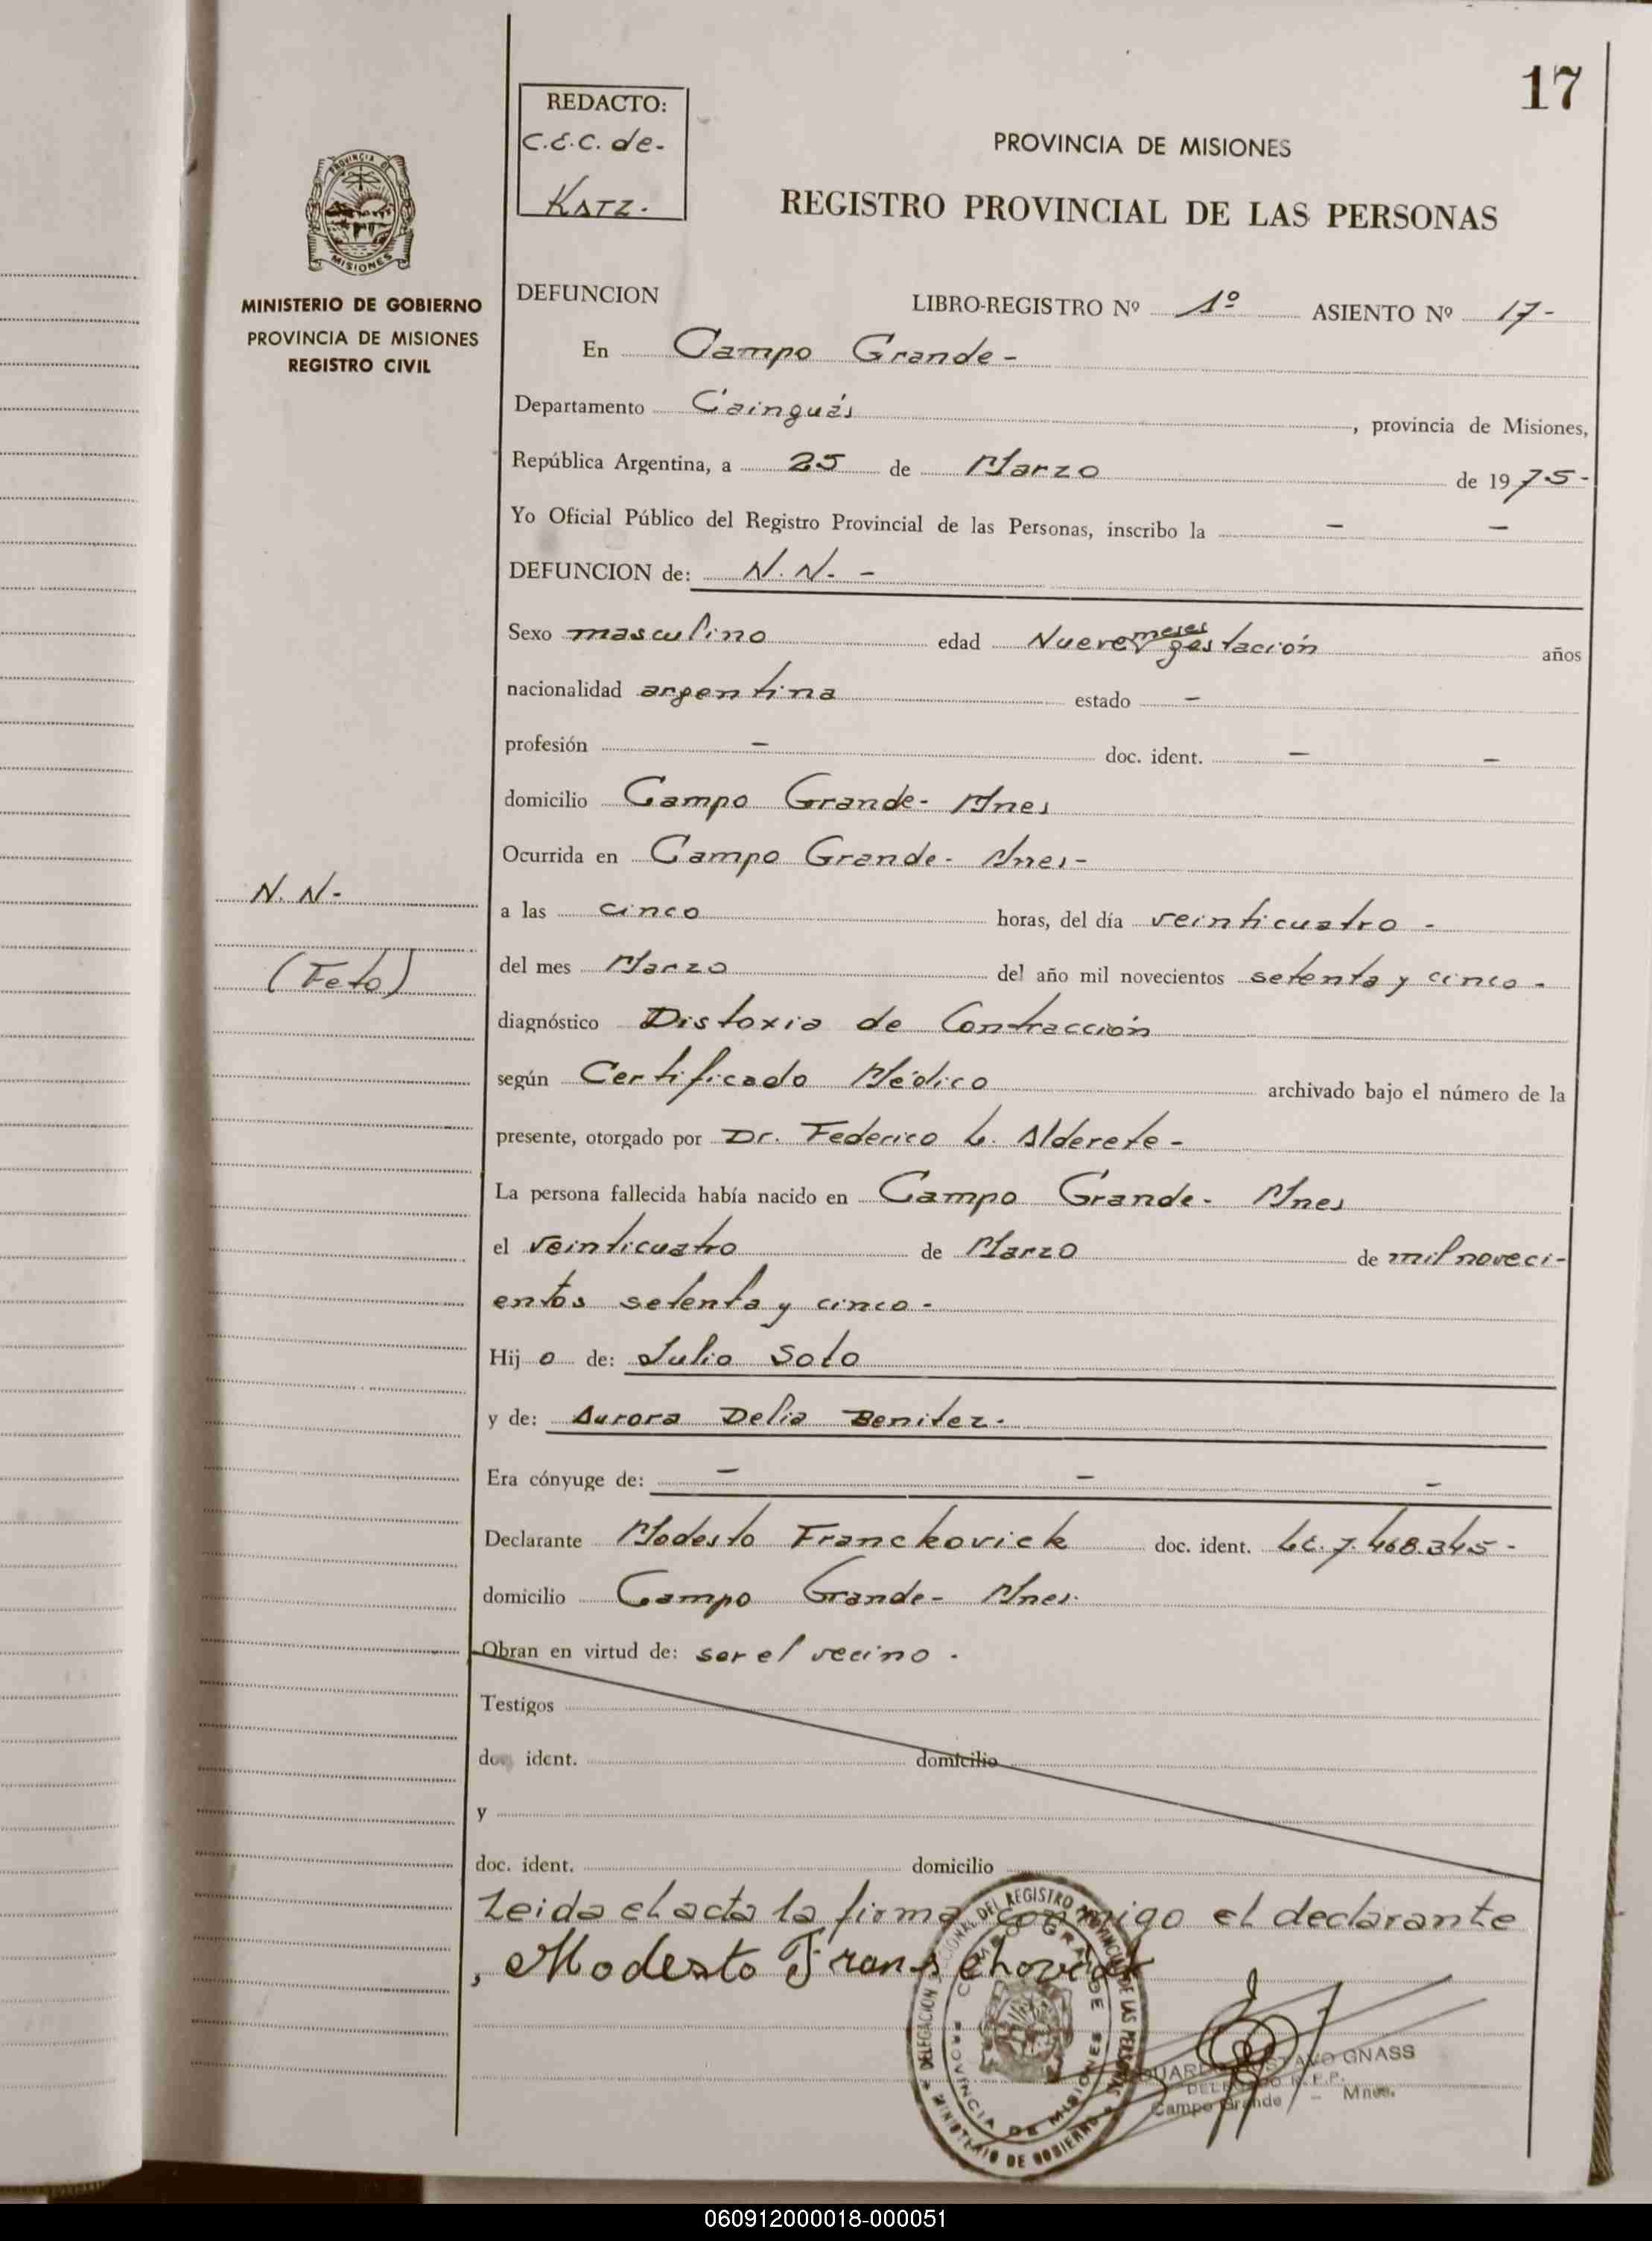 17
REDACTO:
C.E.C. de-
KATZ.
PROVINCIA DE MISIONES
REGISTRO PROVINCIAL DE LAS PERSONAS
PROVINCIA DE
MISIONES
MINISTERIO DE GOBIERNO
PROVINCIA DE MISIONES
REGISTRO CIVIL
DEFUNCION LIBRO-REGISTRO Nº 1º ASIENTO Nº 17-
En Campo Grande-
Departamento Cainguás, provincia de Misiones,
República Argentina, a 25 de Marzo de 1975-
Yo Oficial Público del Registro Provincial de las Personas, inscribo la - -
DEFUNCION de: N.N. -
Sexo masculino edad Nueve meses gestación años
nacionalidad argentina estado -
profesión - doc. ident. - -
domicilio Campo Grande- Mnes
Ocurrida en Campo Grande- Mnes-
N.N-
(Feto)
a las cinco horas, del día veinticuatro -
del mes Marzo del año mil novecientos setenta y cinco -
diagnóstico Distoxia de Contracción
según Certificado Médico archivado bajo el número de la
presente, otorgado por Dr. Federico L. Alderete -
La persona fallecida había nacido en Campo Grande- Mnes
el veinticuatro de Marzo de mil noveci-
entos setenta y cinco -
Hij o de: Julio Soto
y de: Aurora Delia Benitez.
Era cónyuge de: - - -
Declarante Modesto Franckovick doc. ident. L.E. 7.468.345-
domicilio Campo Grande- Mnes.
Obran en virtud de: ser el vecino .
Testigos
doc. ident. domicilio
y
doc. ident. domicilio
Leida el acta la firma conmigo el declarante
, Modesto Franschovick
DELEGACION DEL REGISTRO PROVINCIAL DE LAS PERSONAS
CAMPO GRANDE
PROVINCIA DE MISIONES
MINISTERIO DE GOBIERNO
GUSTAVO GNASS
DELEGADO R.P.P.
Campo Grande - Mnes.
060912000018-000051